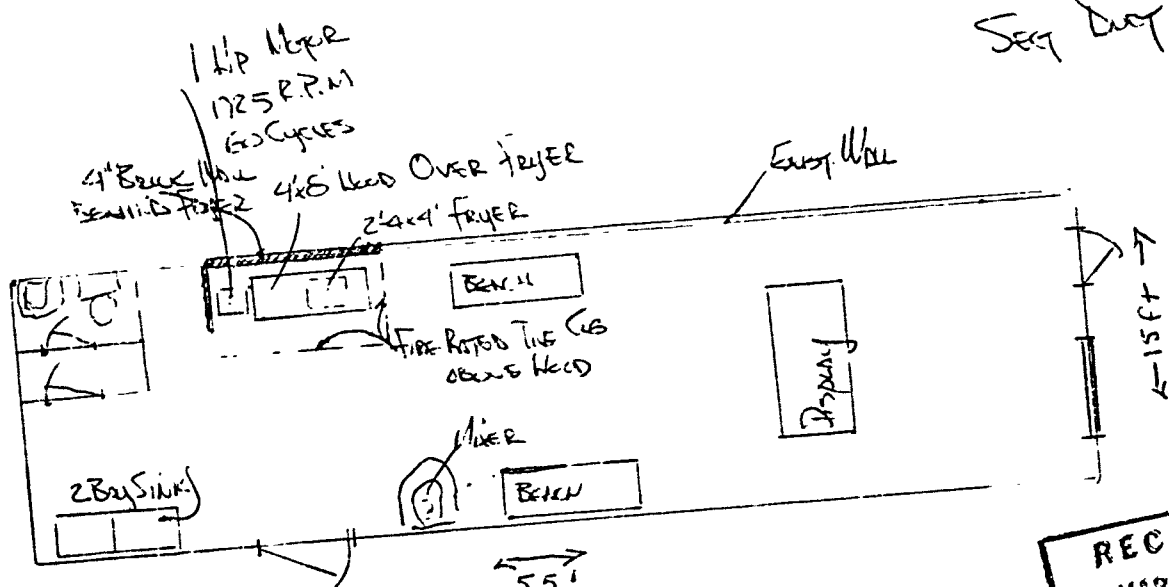 1 HP Motor
1725 R.P.M
60 Cycles
4" Brick Wall
Behind Fryer
4'x8' Hood Over Fryer
2'4x4' Fryer
Exist. Wall
Bench
Fire Rated Tile
above Hood
Display
←15ft→
Mixer
2 Bay Sink
Bench
55'
REC